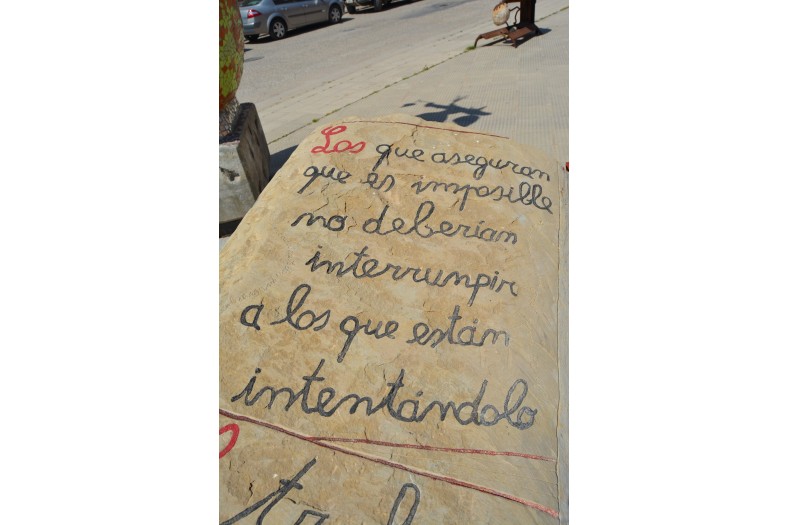 Los que aseguran
que es imposible
no deberían
interrunpir
a los que están
intentándolo